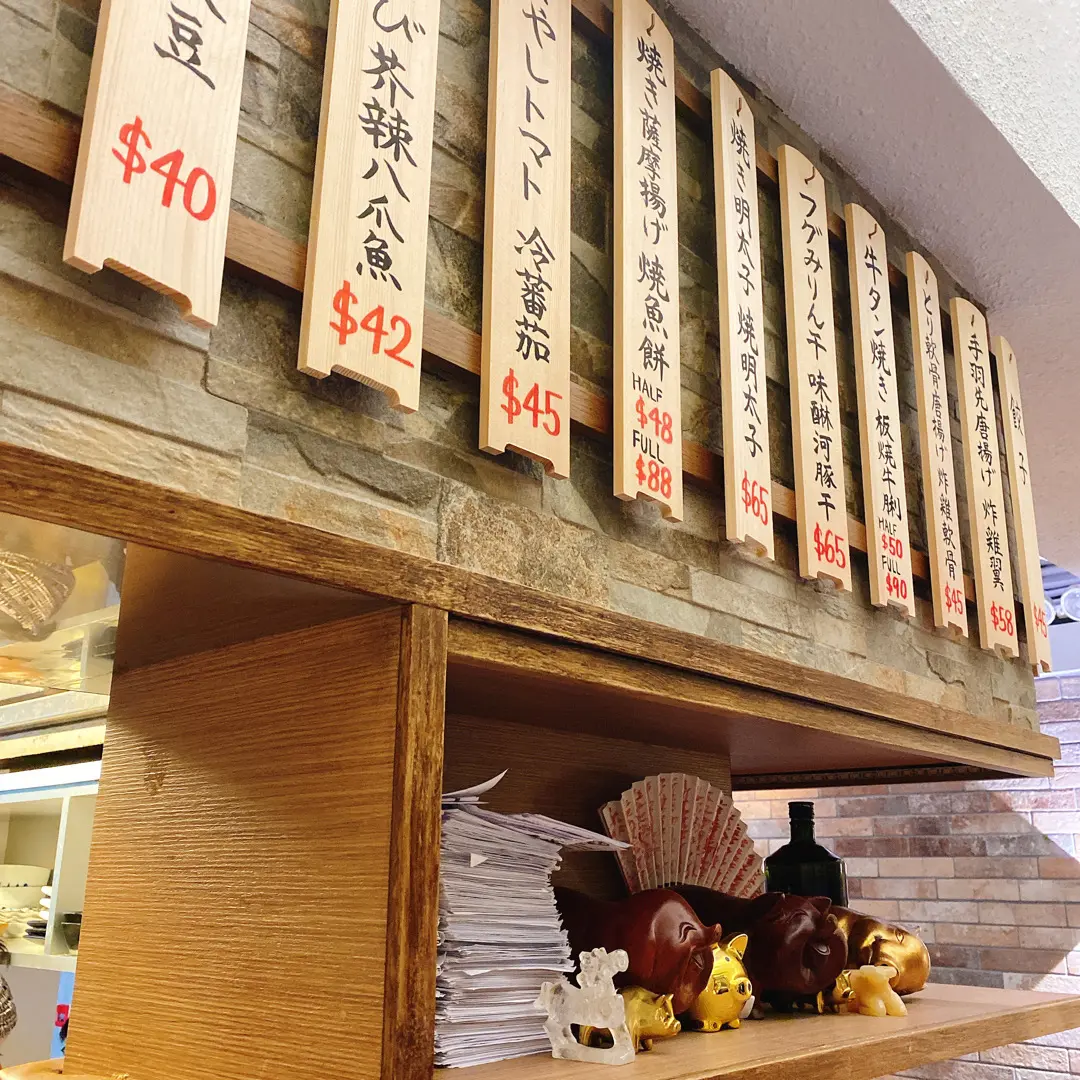 豆
$40
び芥辣八爪魚
$42
やしトマト 冷蕃茄
$45
焼き薩摩揚げ 焼魚餅
HALF
$48
FULL
$88
焼き明太子 焼明太子
$65
フグみりん干 味醂河豚干
$65
牛タン焼き 板焼牛脷
HALF
$50
FULL
$90
とり軟骨唐揚げ 炸雞軟骨
$45
手羽先唐揚げ 炸雞翼
$58
餃子
$45